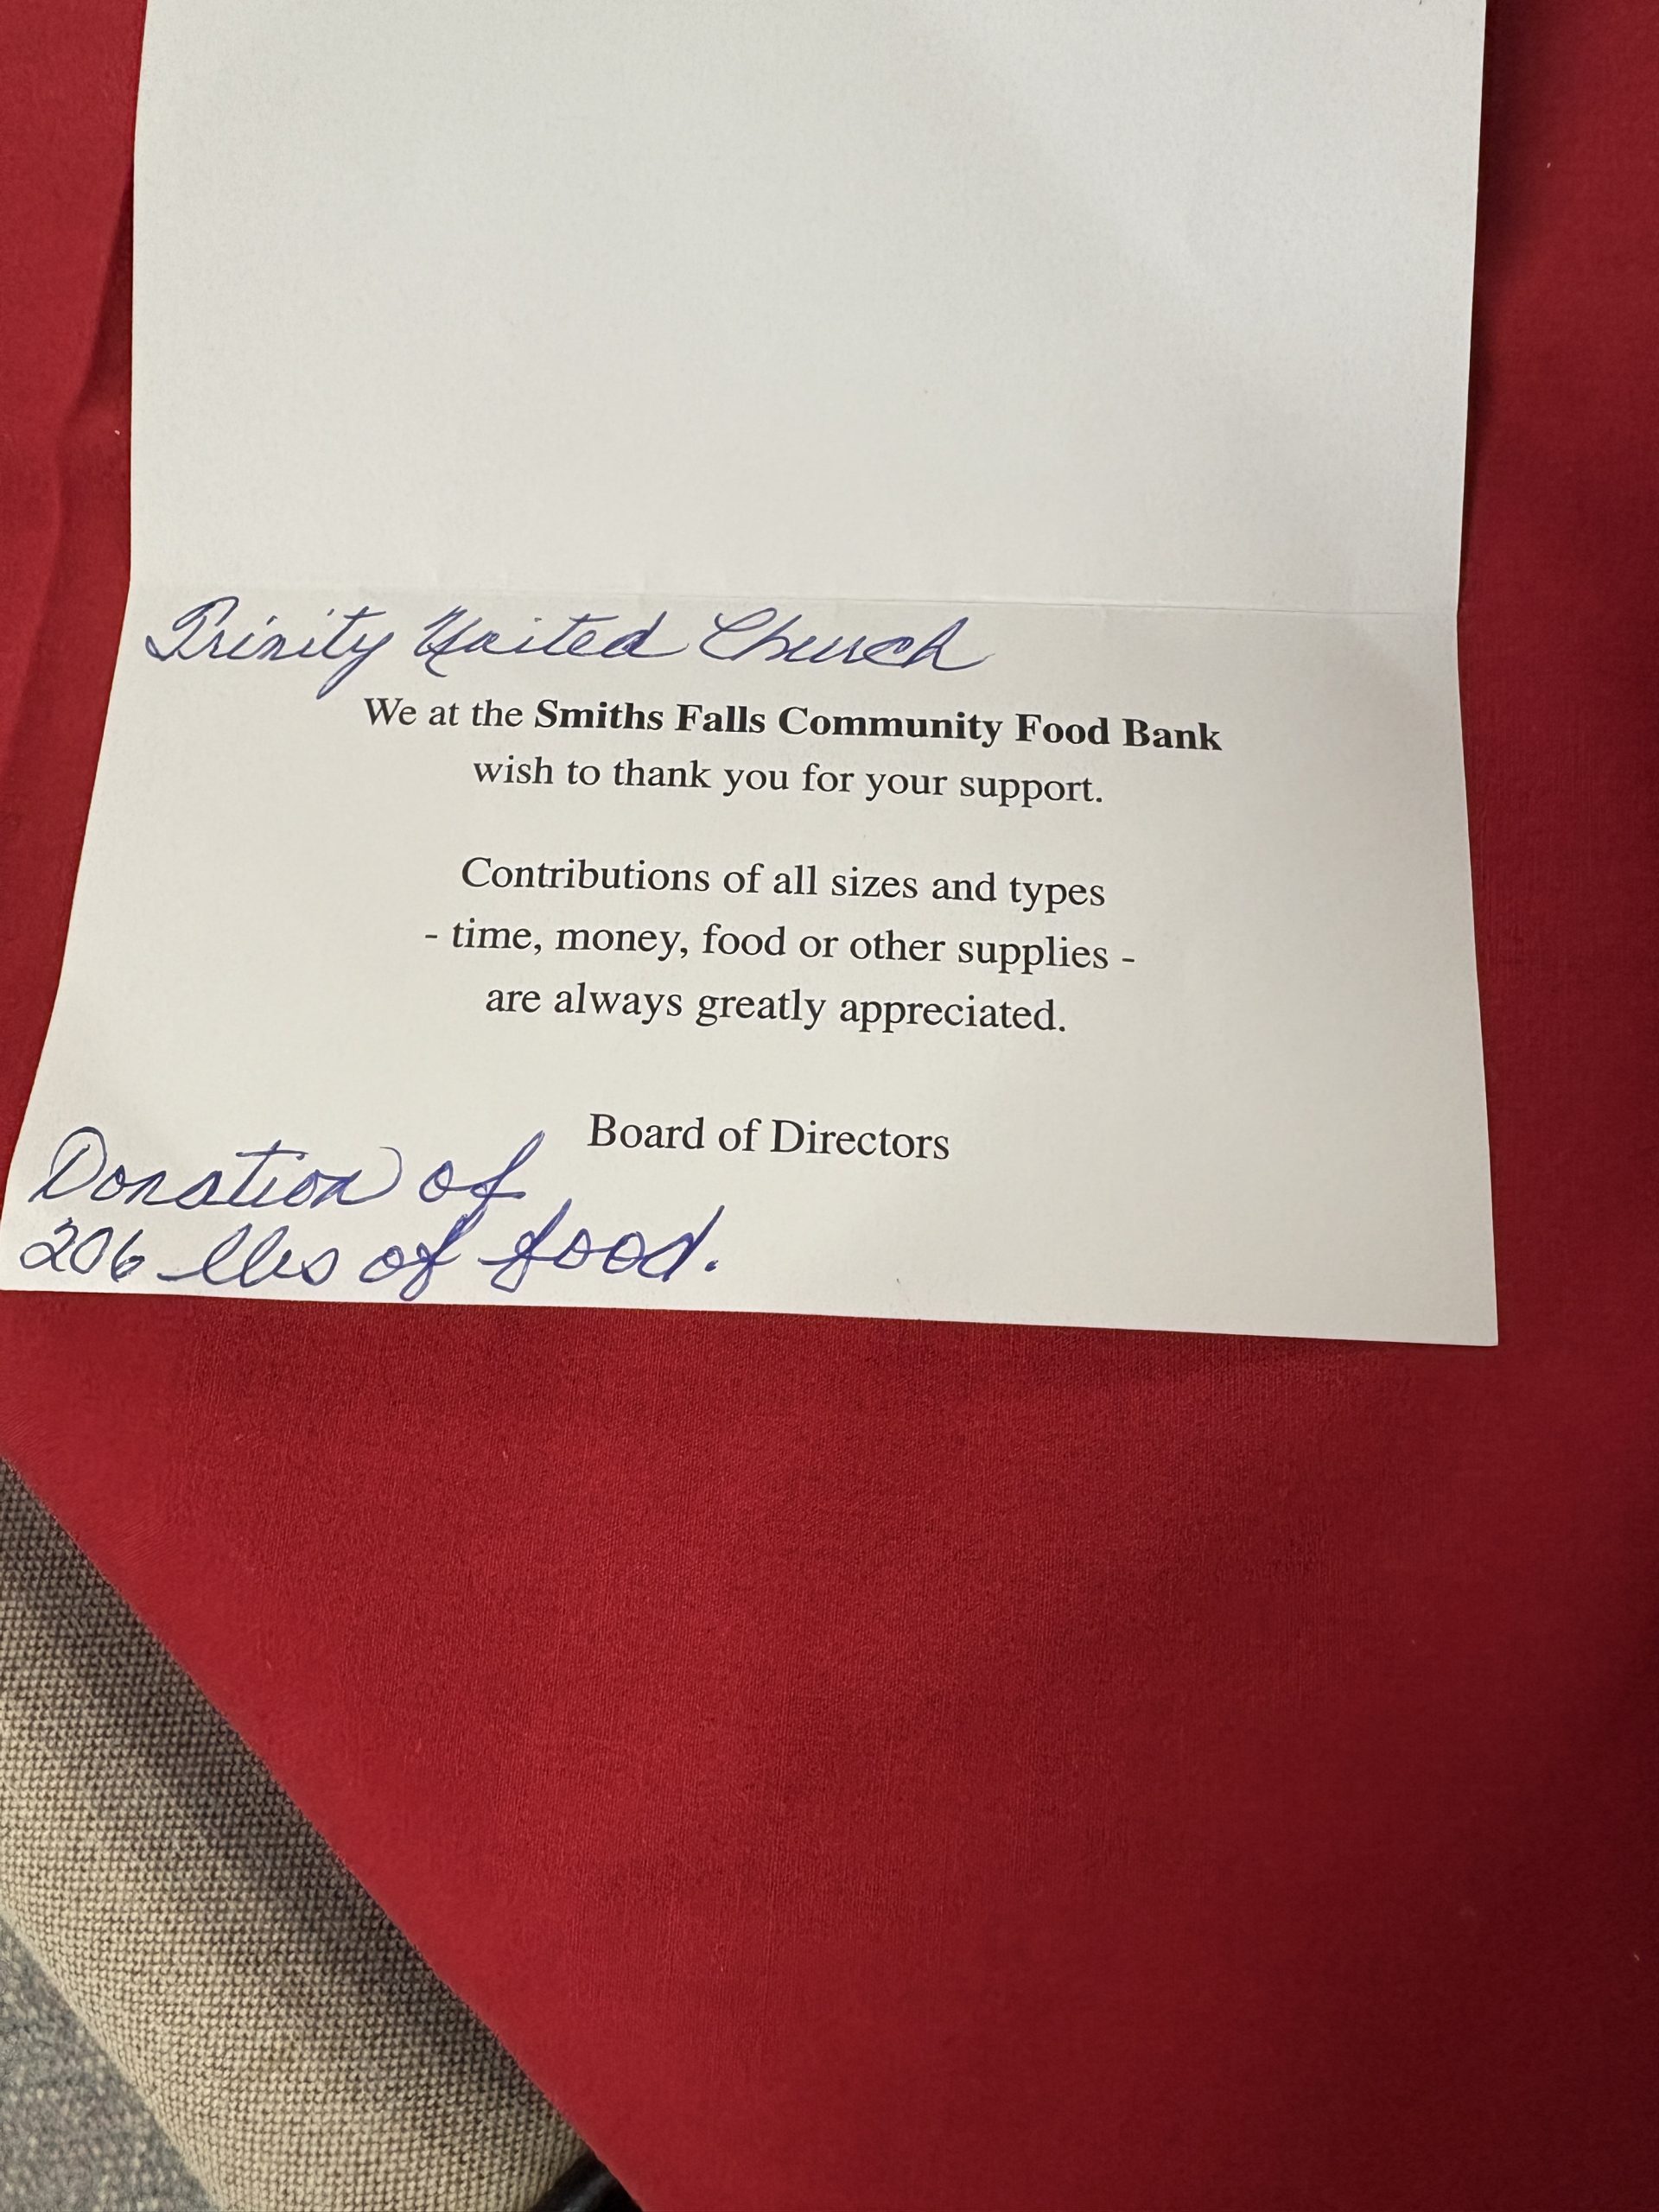 Trinity United Church
We at the Smiths Falls Community Food Bank
wish to thank you for your support.
Contributions of all sizes and types
- time, money, food or other supplies -
are always greatly appreciated.
Board of Directors
Donation of
206 lbs of food.